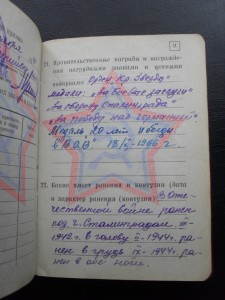 9
21. Правительственные награды и награжде-
ния нагрудными знаками и ценными
подарками Орден „Кр. Звезда"
медали: „За боевые заслуги"
„За оборону Сталинграда"
„За победу над Германией"
Медаль 20 лет победы
в В.О.В"
22. Какие имеет ранения и контузии (дата
и характер ранения (контузии) В Оте-
чественной войне ранен
под г. Сталинградом
1942г. в голову 1944г. ра-
нен в грудь IX-1944г. ра-
нен в обе ноги.